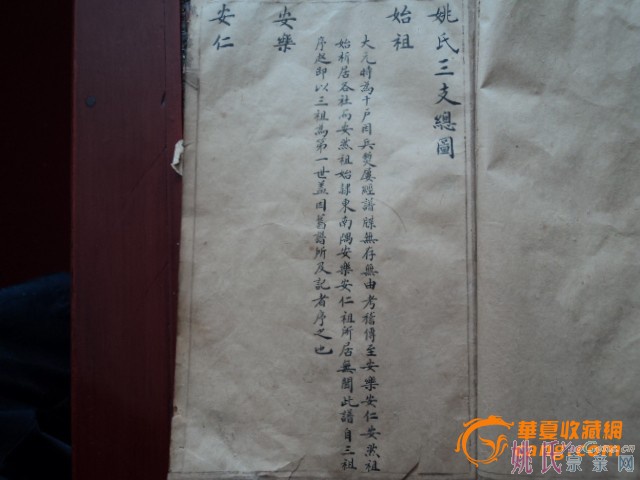 姚氏三支總圖
始祖
大元時為千戶因兵燹屢經譜牒無存無由考稽傳至安樂安仁安然祖
始析居各社局安然祖始隸東南隅安樂安仁祖所居無聞此譜自三祖
序起卽以三祖為第一世盖因舊譜所及記者序之也
安樂
安仁
華夏收藏網
姚氏宗亲网